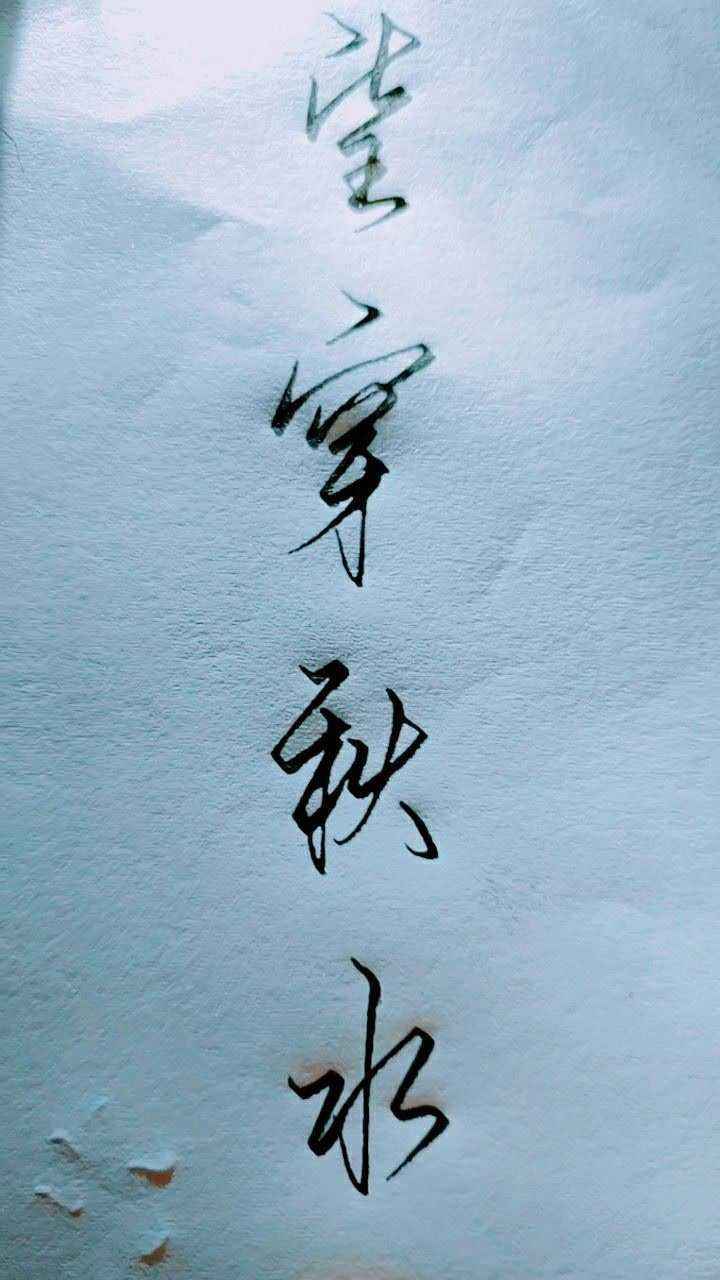 望穿秋水